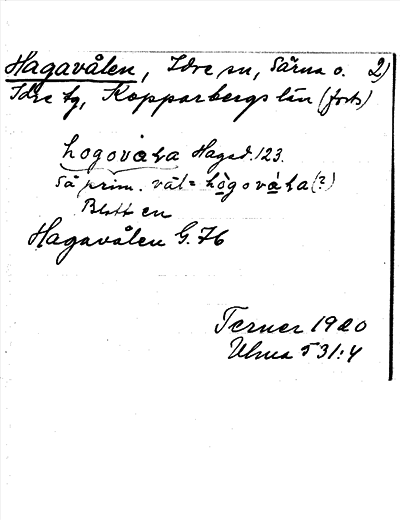 Hagavålen, Idre sn, Särna o. 2)
Idre tg, Kopparbergs län (forts)
hogovåła Hagsd. 123.
så prim. väl = hògovàła (?)
Blott en
Hagavålen G. 76
Terner 1920
Ulma 531:4